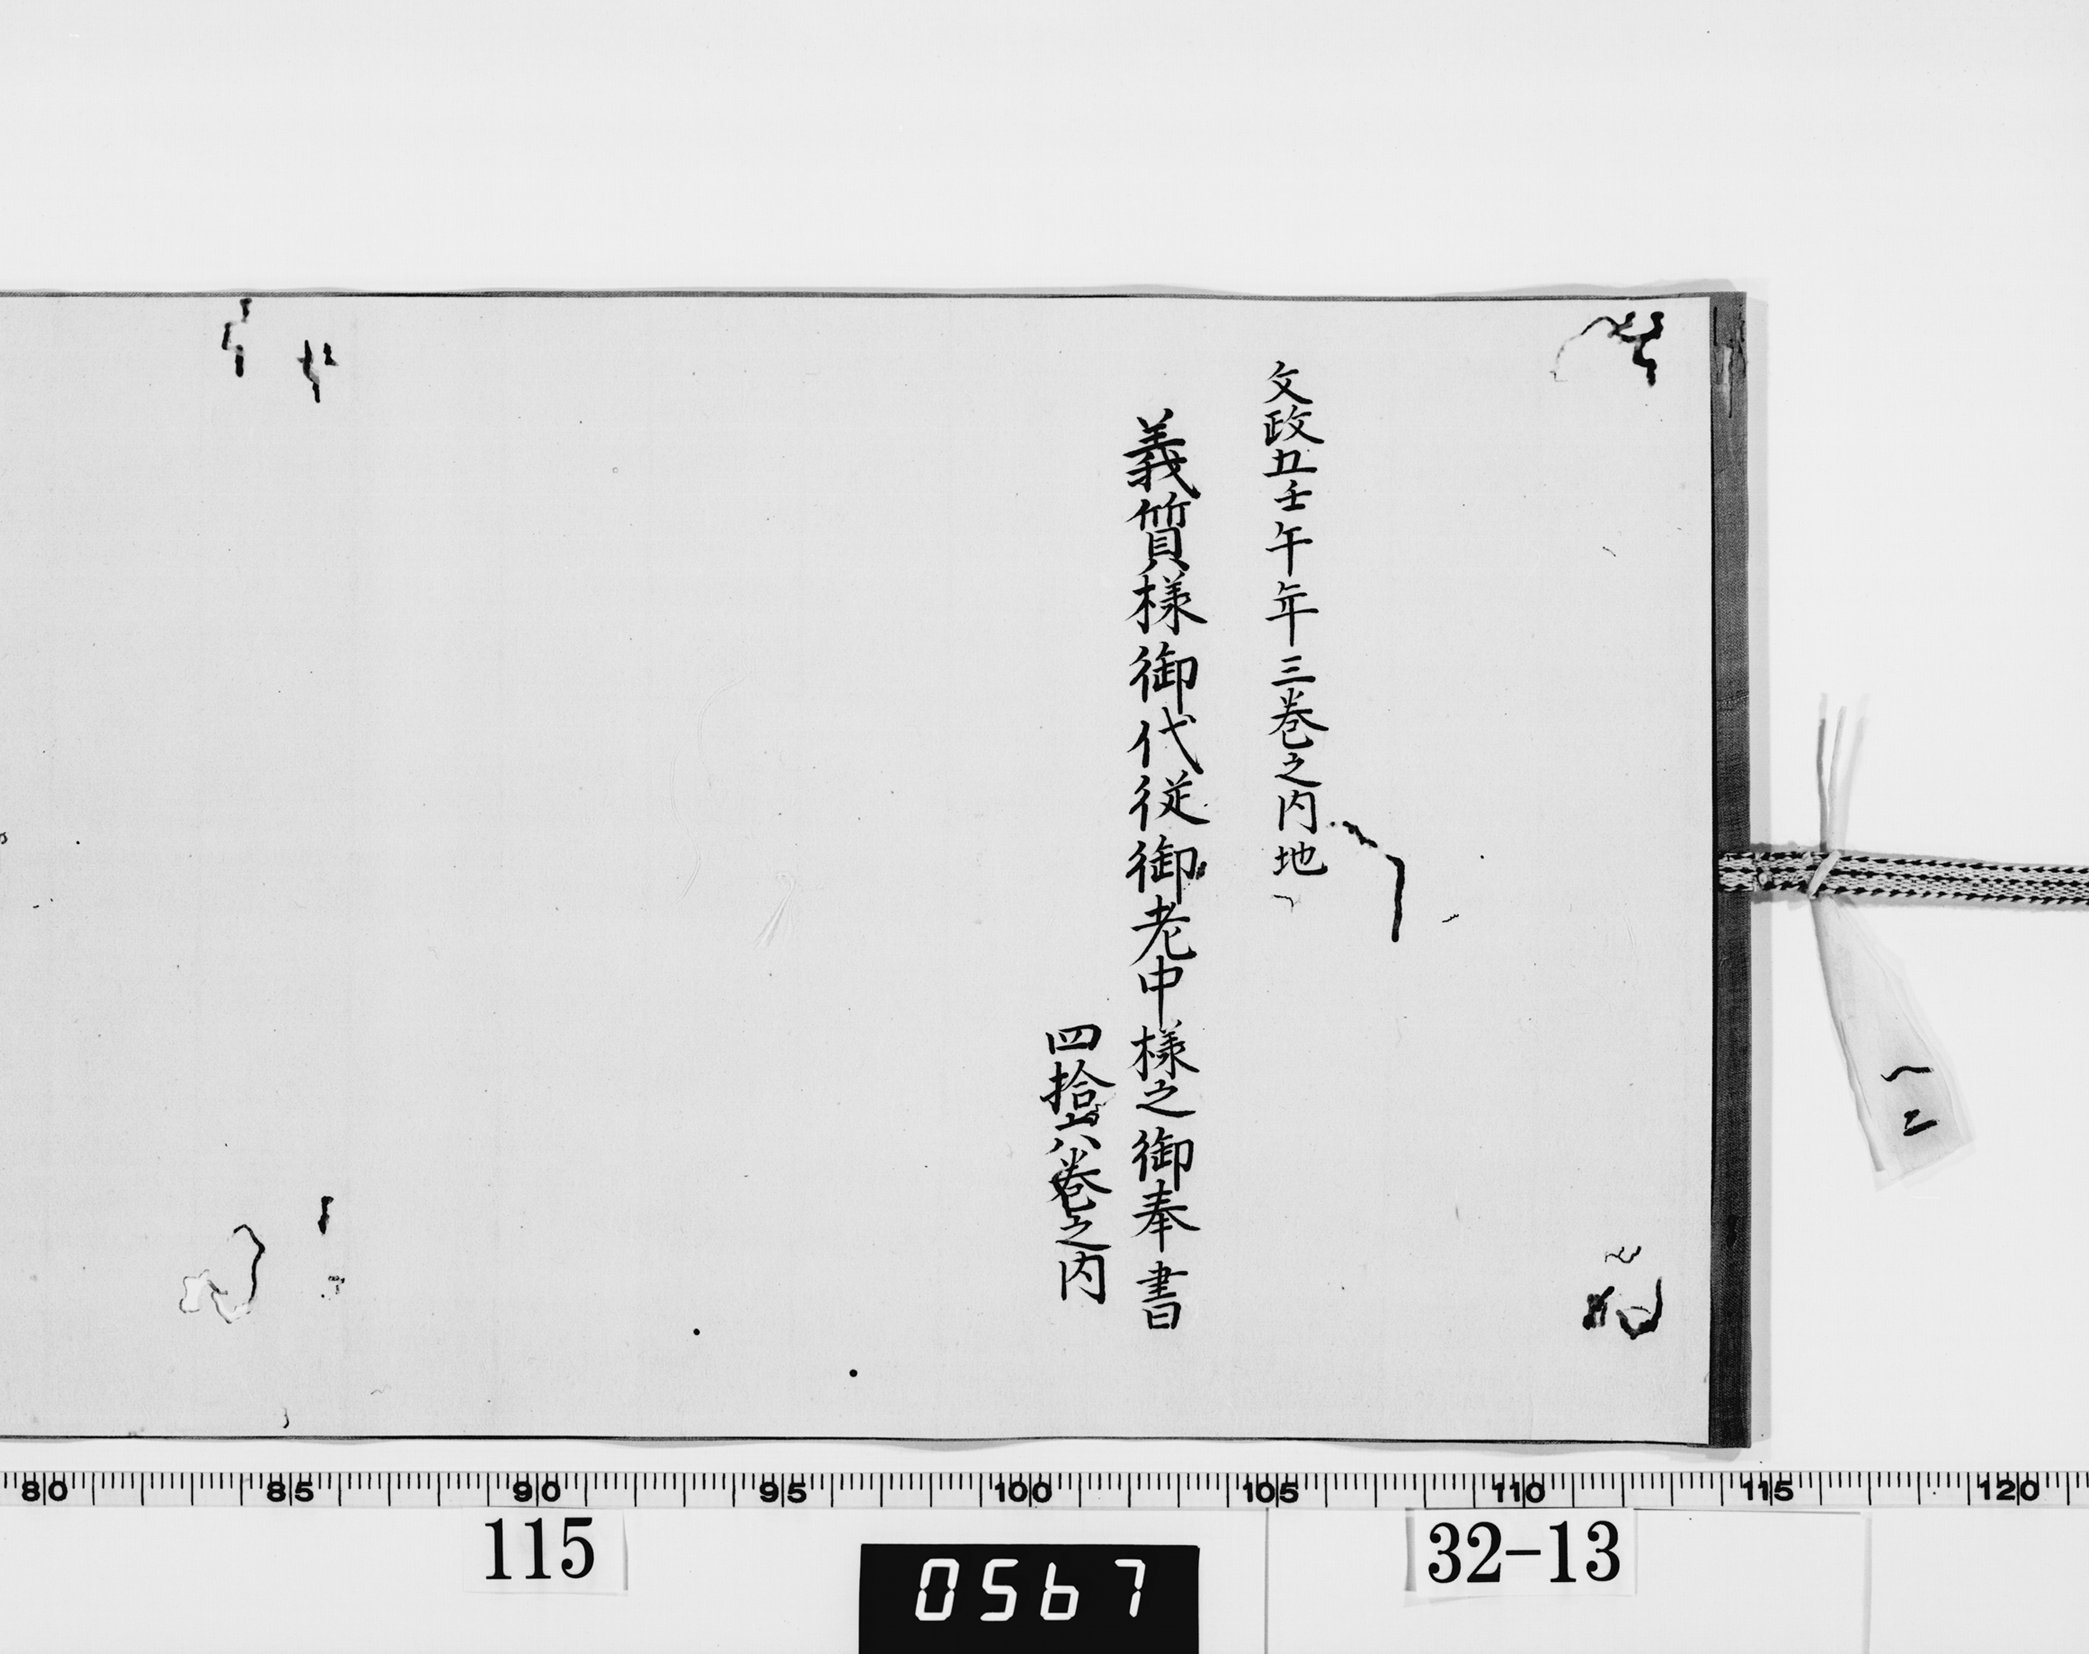 文政五壬午年三巻之内地
義質様御代従御老中様之御奉書
四拾六巻之内
80 85 90 95 100 105 110 115 120
115
0567
32-13